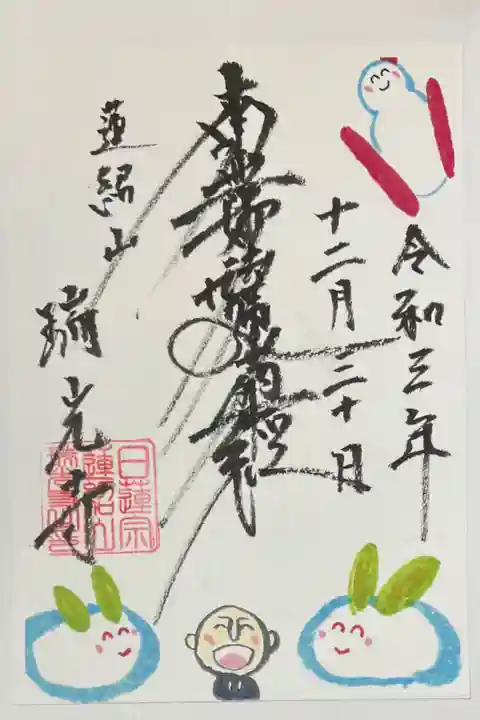 令和三年
十二月二十日
南無妙法蓮華経
蓮紹山
瑞光寺
日蓮宗
蓮紹山